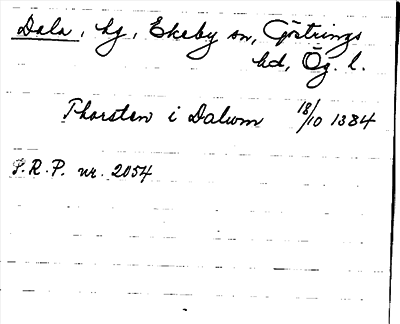 Dala, hg, Ekeby sn, Göstrings
hd, Ög. l.
Thorsten i Dalwm 18/10 1384
S.R.P. nr. 2054